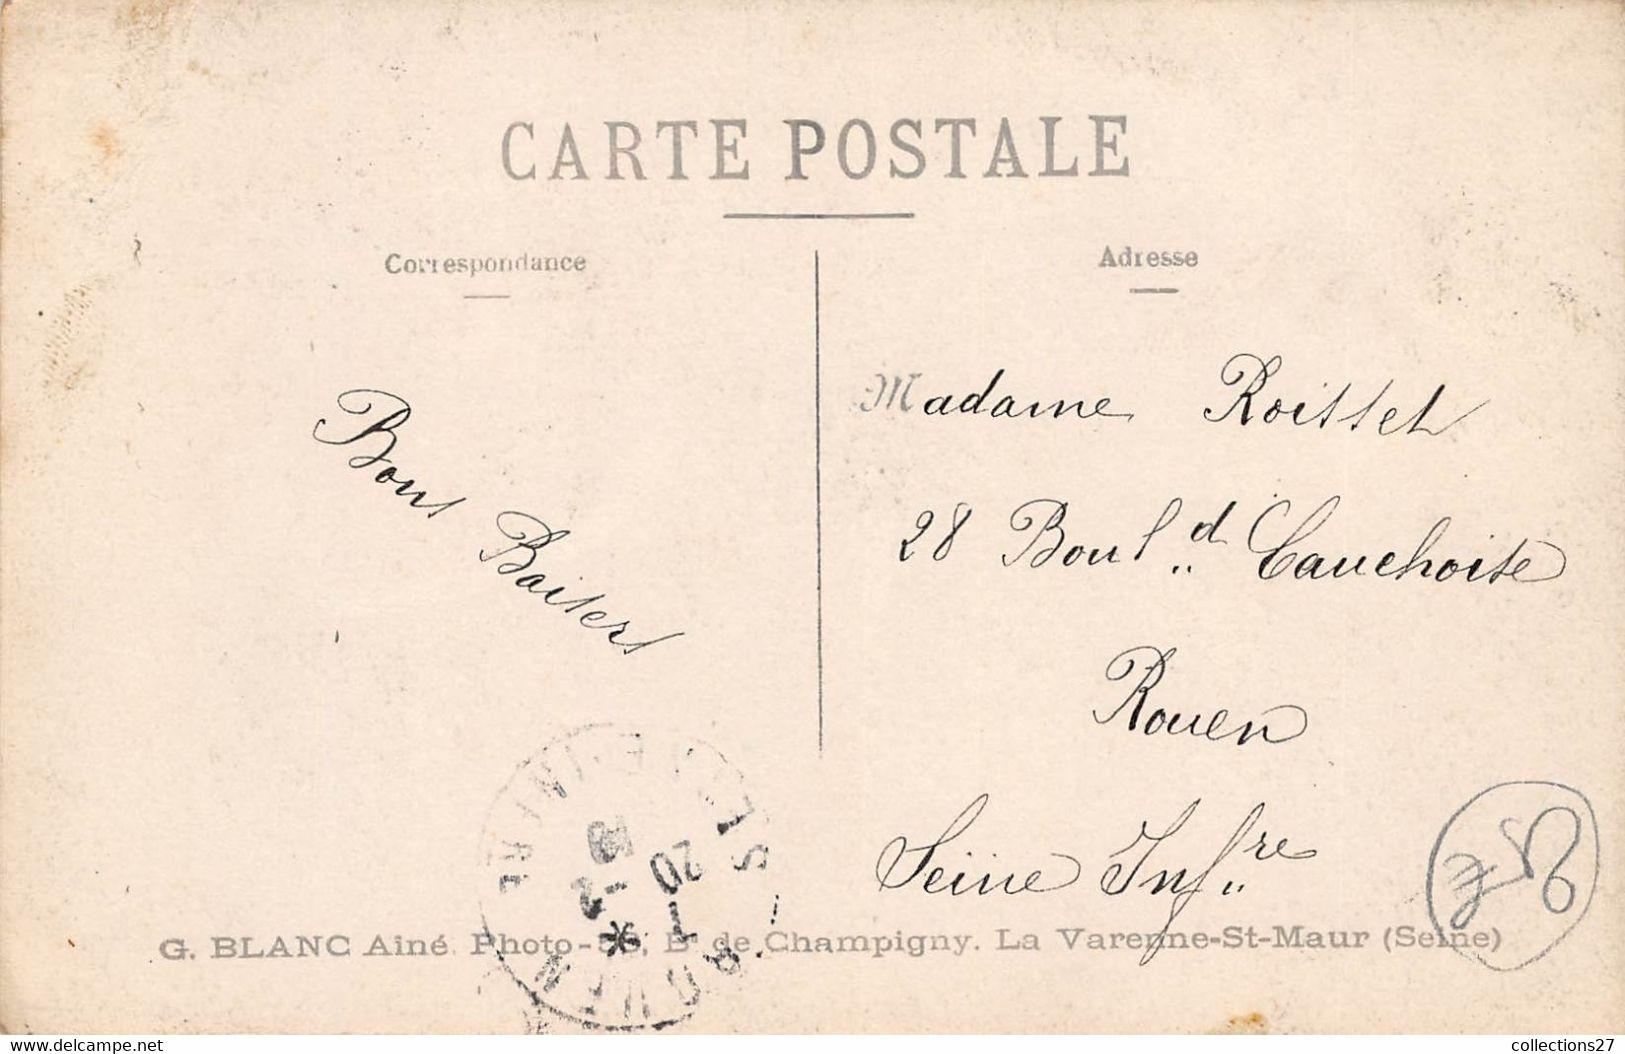 CARTE POSTALE
Correspondance
Adresse
Bons Baisers
Madame Roisset
28 Boul.d Cauchoise
Rouen
Seine Inf.re
G. BLANC Ainé. Photo- Bd de Champigny. La Varenne-St-Maur (Seine)
collections27
https://www.delcampe.net